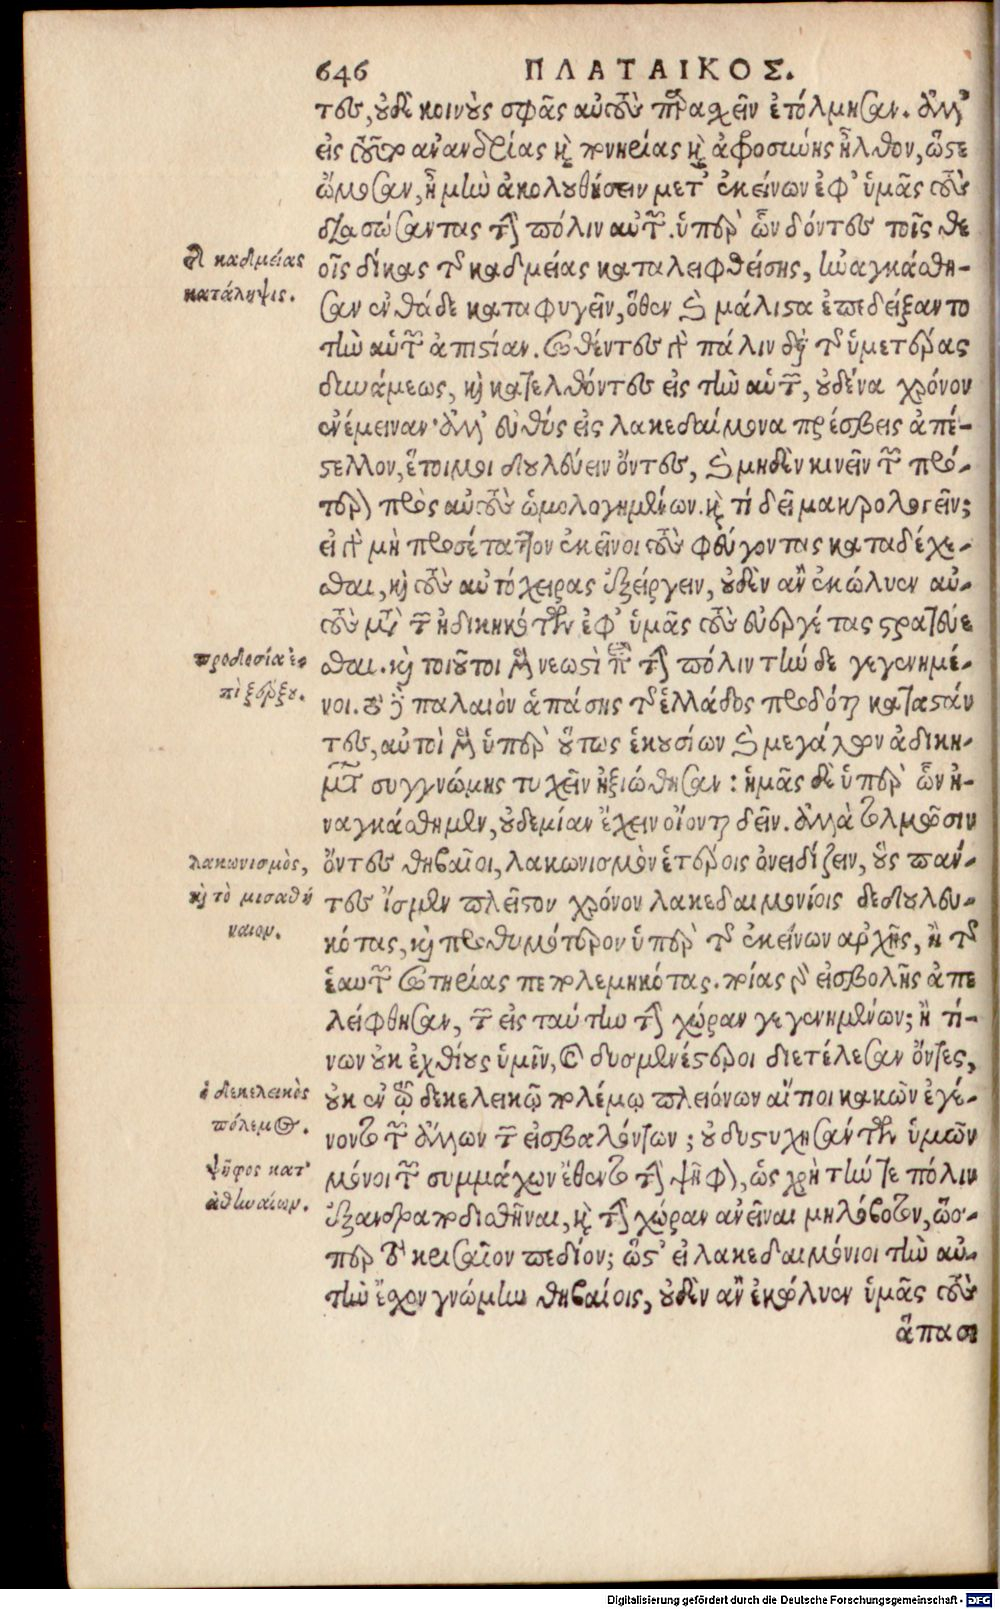 646 ΠΛΑΤΑΙΚΟΣ.
τες, οὐδὲ κοινοὺς σφᾶς αὐτοὺς παραχεῖν ἐτόλμησαν. ἀλλ'
εἰς τοῦτο ἀνανδρίας καὶ πονηρίας καὶ ἀφοσιώης ἦλθον, ὥστε
ὤμοσαν, ἦ μὴν ἀκολουθήσειν μετ' ἐκείνων ἐφ' ὑμᾶς τοὺς
διασώσαντας τὴν πόλιν αὐτῶν. ὑπὲρ ὧν δόντες τοῖς θε
οῖς δίκας τῆς καδμείας καταλειφθείσης, ἠναγκάσθη-
σαν ἐνθάδε καταφυγεῖν, ὅθεν καὶ μάλιστα ἐπεδείξαντο
τὴν αὑτῶν ἀπιστίαν. σωθέντες γὰρ πάλιν διὰ τῆς ὑμετέρας
δυνάμεως, καὶ κατελθόντες εἰς τὴν αὑτῶν, οὐδένα χρόνον
ἐνέμειναν· ἀλλ' εὐθὺς εἰς λακεδαίμονα πρέσβεις ἀπέ-
στελλον, ἕτοιμοι δουλεύειν ὄντες, καὶ μηδὲν κινεῖν τῶν πρό-
τερον πρὸς αὐτοὺς ὡμολογημένων. καὶ τί δεῖ μακρολογεῖν;
εἰ γὰρ μὴ προσέταττον ἐκεῖνοι τοὺς φεύγοντας καταδέχε-
σθαι, καὶ τοὺς αὐτόχειρας ἐξείργειν, οὐδὲν ἂν ἐκώλυεν αὐ-
τοὺς μετὰ τῶν ἠδικηκότων ἐφ' ὑμᾶς τοὺς εὐεργέτας στρατεύε
σθαι. καὶ τοιοῦτοι μὲν νεωστὶ περὶ τὴν πόλιν τήνδε γεγενημέ-
νοι. τὸ δὲ παλαιὸν ἁπάσης τῆς ἑλλάδος προδόται καταστάν
τες, αὐτοὶ μὲν ὑπὲρ οὕτως ἑκουσίων καὶ μεγάλων ἀδικη-
μάτων συγγνώμης τυχεῖν ἠξιώθησαν : ἡμᾶς δὲ ὑπὲρ ὧν ἠ-
ναγκάσθημεν, οὐδεμίαν ἔχειν οἴονται δεῖν. ἀλλὰ τολμῶσιν
ὄντες θηβαῖοι, λακωνισμὸν ἑτέροις ὀνειδίζειν, οὓς πάν-
τες ἴσμεν πλεῖστον χρόνον λακεδαιμονίοις δεδουλευ-
κότας, καὶ προθυμότερον ὑπὲρ τῆς ἐκείνων ἀρχῆς, ἢ τῆς
ἑαυτῶν σωτηρίας πεπολεμηκότας. ποίας γὰρ εἰσβολῆς ἀπε
λείφθησαν, τῶν εἰς ταύτην τὴν χώραν γεγενημένων; ἢ τί-
νων οὐκ ἐχθίους ὑμῖν, καὶ δυσμενέστεροι διετέλεσαν ὄντες,
οὐκ ἐν τῷ δεκελεικῷ πολέμῳ πλειόνων αἴτιοι κακῶν ἐγέ-
νοντο τῶν ἄλλων τῶν εἰσβαλόντων; οὐ δυστυχησάντων ὑμῶν
μόνοι τῶν συμμάχων ἔθεντο τὴν ψῆφον, ὡς χρὴ τήν τε πόλιν
ἐξανδραποδισθῆναι, καὶ τὴν χώραν ἀνεῖναι μηλόβοτον, ὥσ-
περ τὸ κρισαῖον πεδίον; ὥστ' εἰ λακεδαιμόνιοι τὴν αὐ-
τὴν ἔχον γνώμην θηβαίοις, οὐδὲν ἂν ἐκώλυεν ὑμᾶς τοὺς
ἅπασι
καδμείας
κατάληψις.
προδοσία ἐ-
πὶ ξέρξου.
λακωνισμὸς,
καὶ τὸ μισαθή
ναιον.
ὁ δεκελεικὸς
πόλεμος.
ψῆφος κατ'
ἀθηναίων.
Digitalisierung gefördert durch die Deutsche Forschungsgemeinschaft - DFG